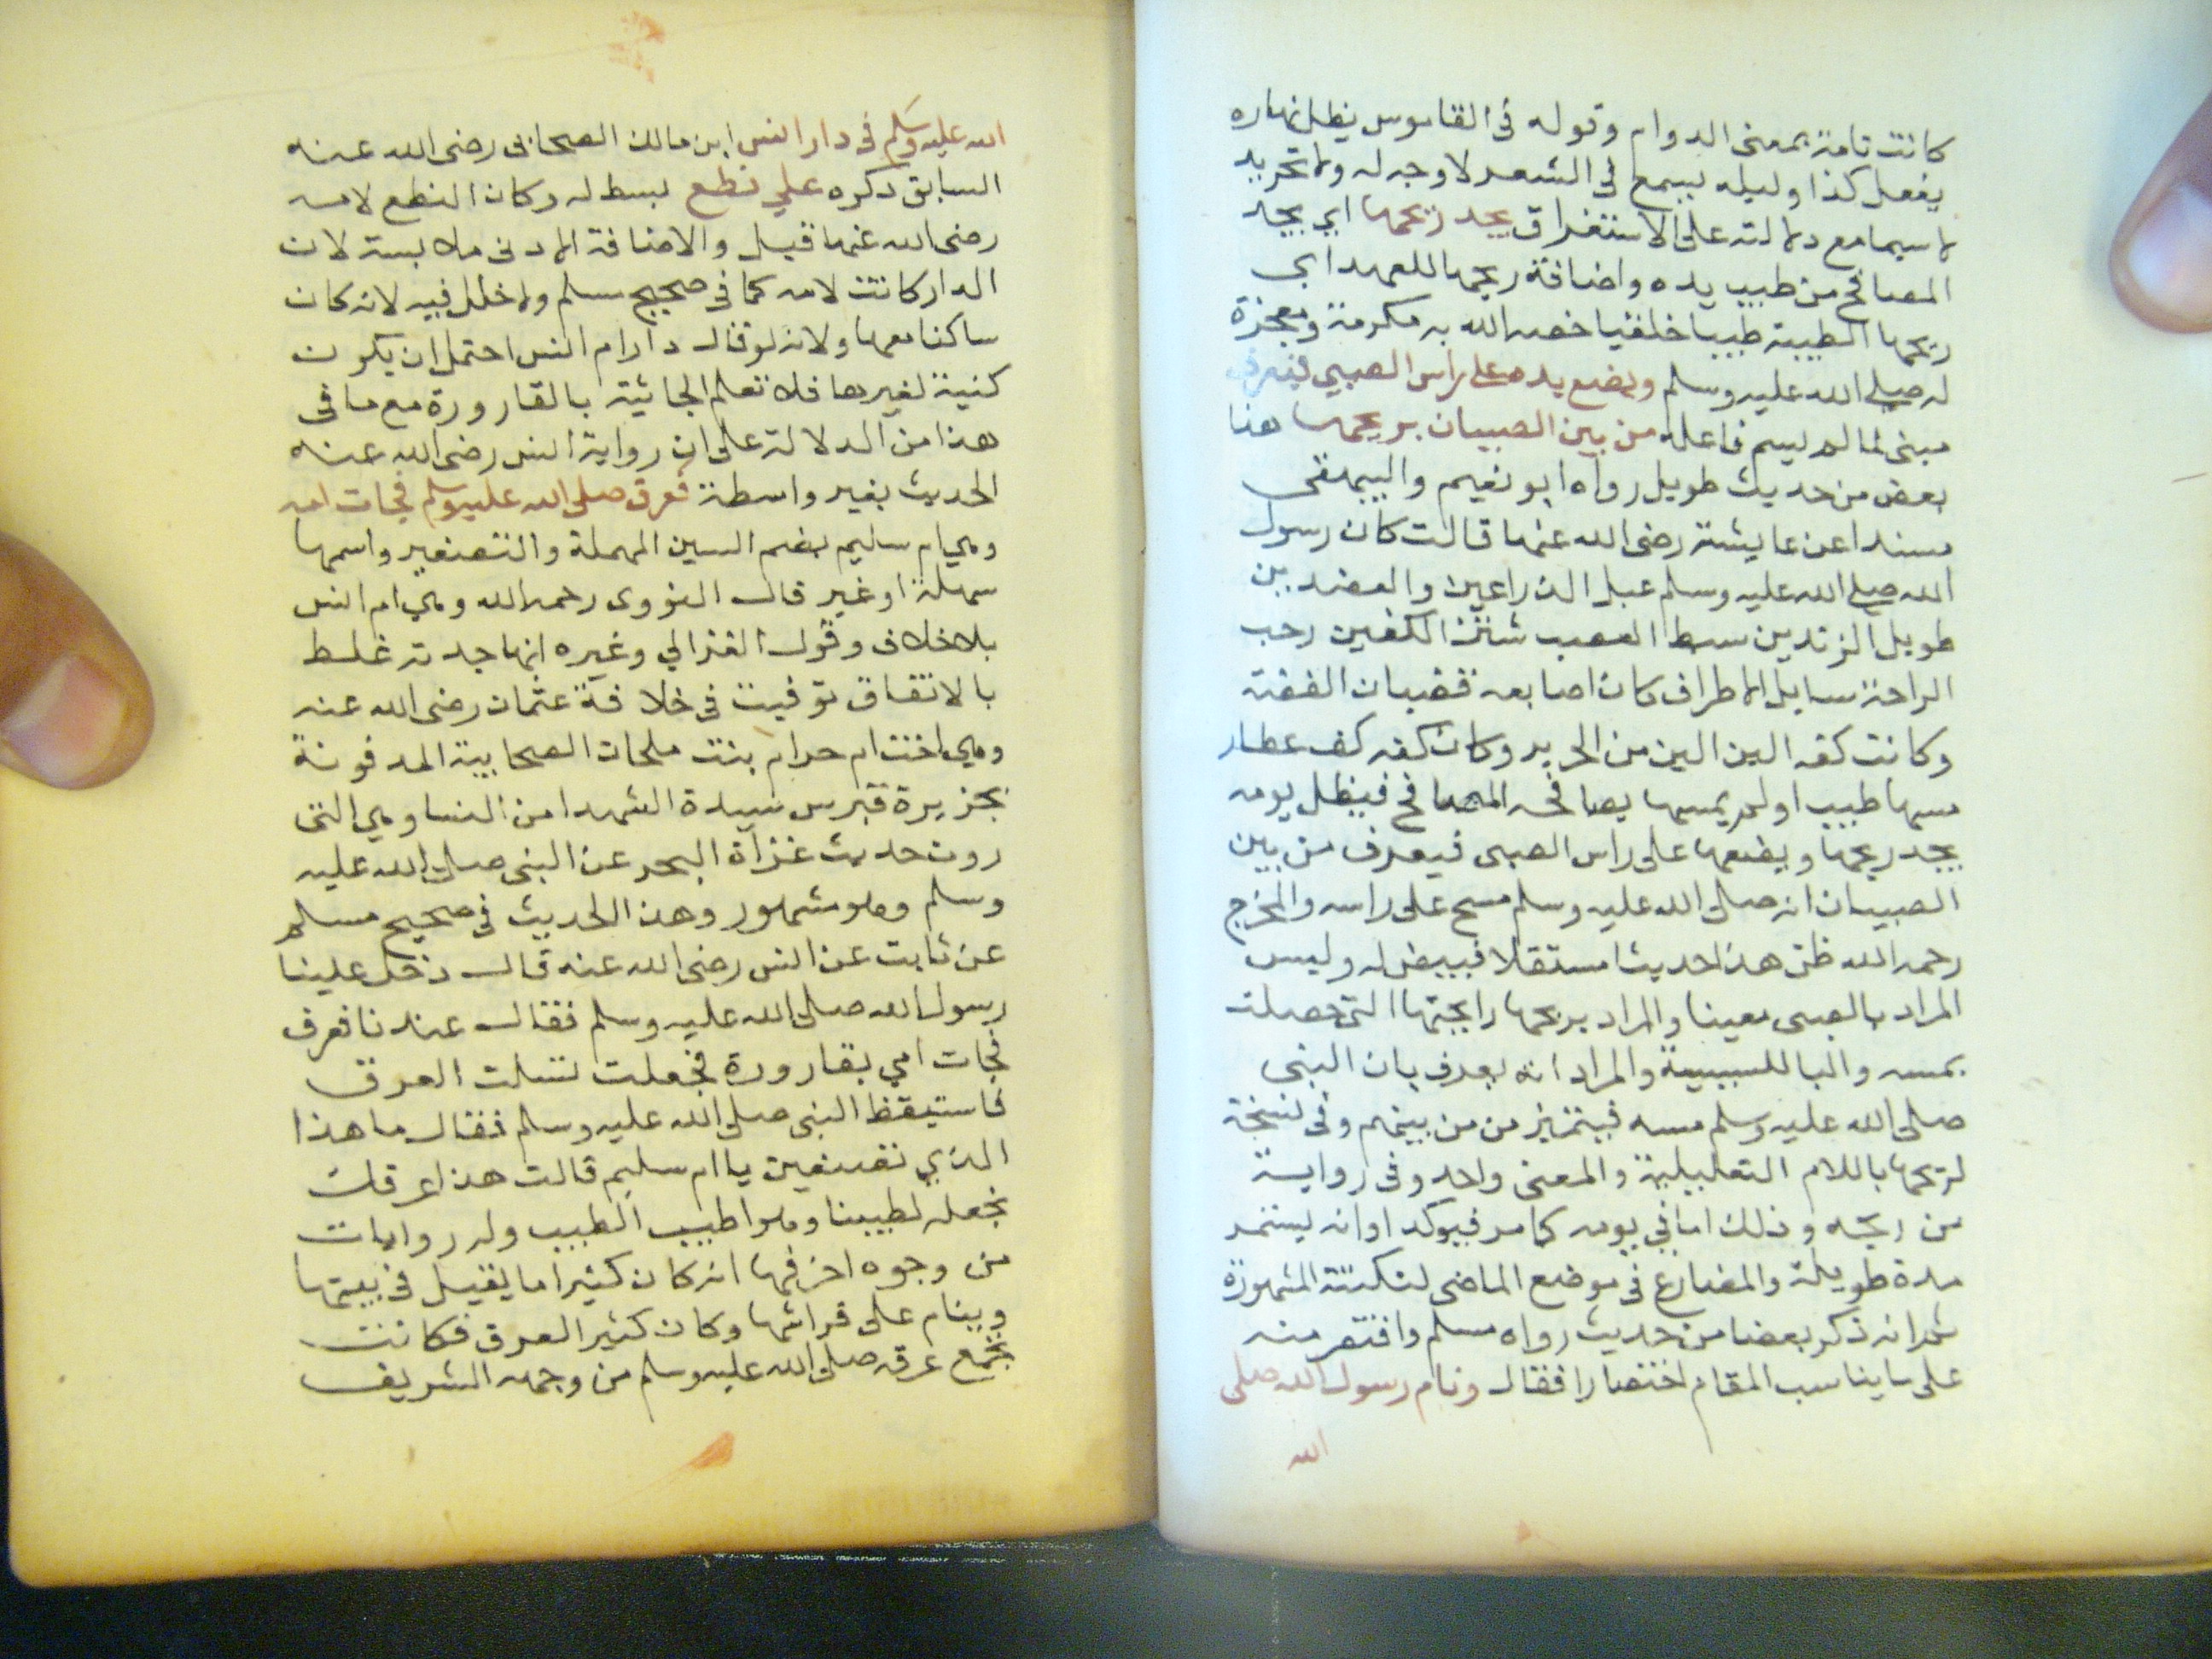 كانت تامة بمعنى الدوام وقوله فى القاموس يظل نهاره
يفعل كذا وليله يسمع فى الشعر لا وجه له ولا تجريد
لا سيما مع دلالته على الاستغراق يجد ريحها اي يجد
المصافح من طيب يده واضافة ريحها للعهد اى
ريحها الطيبة طيبا خلقيا خصه الله به مكرمة ومعجزة
له صلى الله عليه وسلم ويضع يده على راس الصبي فيعرف
مبنى لما لم يسم فاعله من بين الصبيان بريحها هذا
بعض من حديث طويل رواه ابو نعيم والبيهقى
مسندا عن عايشة رضى الله عنها قالت كان رسول
الله صلى الله عليه وسلم عبل الذراعين والعضدين
طويل الزندين سبط العصب شثن الكفين رحب
الراحة سايل الاطراف كان اصابعه قضبان الفضة
وكانت كفه الين الين من الحرير وكان كفه كف عطار
مسها طيب او لم يمسها يصافحه المصافح فيظل يومه
يجد ريحها ويضعها على راس الصبى فيعرف من بين
الصبيان انه صلى الله عليه وسلم مسح على راسه والمخرج
رحمه الله ظن هذا حديثا مستقلا فبيض له وليس
المراد بالصبى معينا والمراد بريحها رايحتها التى حصلت
بمسه والبا للسببية والمراد انه يعرف بان النبى
صلى الله عليه وسلم مسه فيتميز من من بينهم وفى نسخة
لريحها باللام التعليلية والمعنى واحد وفى رواية
من ريحه وذلك اما فى يومه كما مر فيوكد او انه يستمر
مدة طويلة والمضارع فى موضع الماضى لنكتته المشهورة
ثم انه ذكر بعضا من حديث رواه مسلم واقتصر منه
على ما يناسب المقام اختصارا فقال ونام رسول الله صلى
الله
الله عليه وسلم فى دار انس ابن مالك الصحابى رضى الله عنه
السابق ذكره على نطع بسط له وكان النطع لامه
رضى الله عنها قيل والاضافة لادنى ملابسة لان
الدار كانت لامه كما فى صحيح مسلم ولا خلل فيه لانه كان
ساكنا معها ولانه لو قال دار ام انس احتمل ان يكون
كنية لغيرها فلا تعلم الجائية بالقارورة مع ما فى
هذا من الدلالة على ان رواية انس رضى الله عنه
الحديث بغير واسطة فعرق صلى الله عليه وسلم فجات امه
وهي ام سليم بضم السين المهملة والتصغير واسمها
سهلة او غير قال النووى رحمه الله وهي ام انس
بلا خلاف وقول الغزالي وغيره انها جدته غلط
بالاتفاق توفيت فى خلافة عثمان رضى الله عنه
وهي اخت ام حرام بنت ملحان الصحابية المدفونة
بجزيرة قبرس سيدة الشهدا من النسا وهي التى
روت حديث غزاة البحر عن النبى صلى الله عليه
وسلم وهو مشهور وهذا الحديث فى صحيح مسلم
عن ثابت عن انس رضى الله عنه قال دخل علينا
رسول الله صلى الله عليه وسلم فقال عندنا فعرق
فجات امي بقارورة فجعلت تسلت العرق
فاستيقظ النبى صلى الله عليه وسلم فقال ما هذا
الذي تصنعين يا ام سليم قالت هذا عرقك
نجعله لطيبنا وهو اطيب الطيب وله روايات
من وجوه اخر فيها انه كان كثيرا ما يقيل فى بيتها
وينام على فراشها وكان كثير العرق فكانت
تجمع عرقه صلى الله عليه وسلم من وجهه الشريف